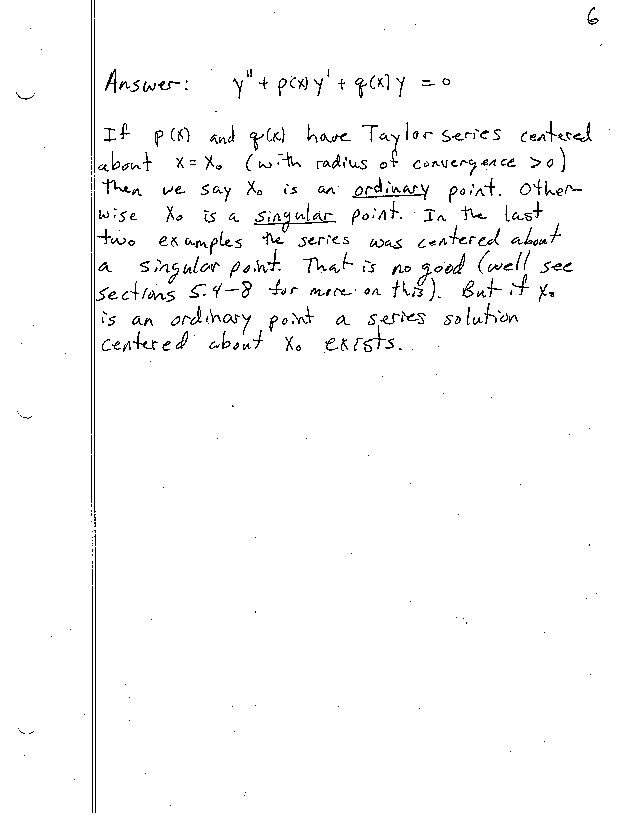 6
Answer: y'' + p(x) y' + q(x) y = 0
If p(x) and q(x) have Taylor series centered
about x = x₀ (with radius of convergence > 0)
then we say x₀ is an ordinary point. Other-
wise x₀ is a singular point. In the last
two examples the series was centered about
a singular point. That is no good (well see
sections 5.4-8 for more on this). But if x₀
is an ordinary point a series solution
centered about x₀ exists.